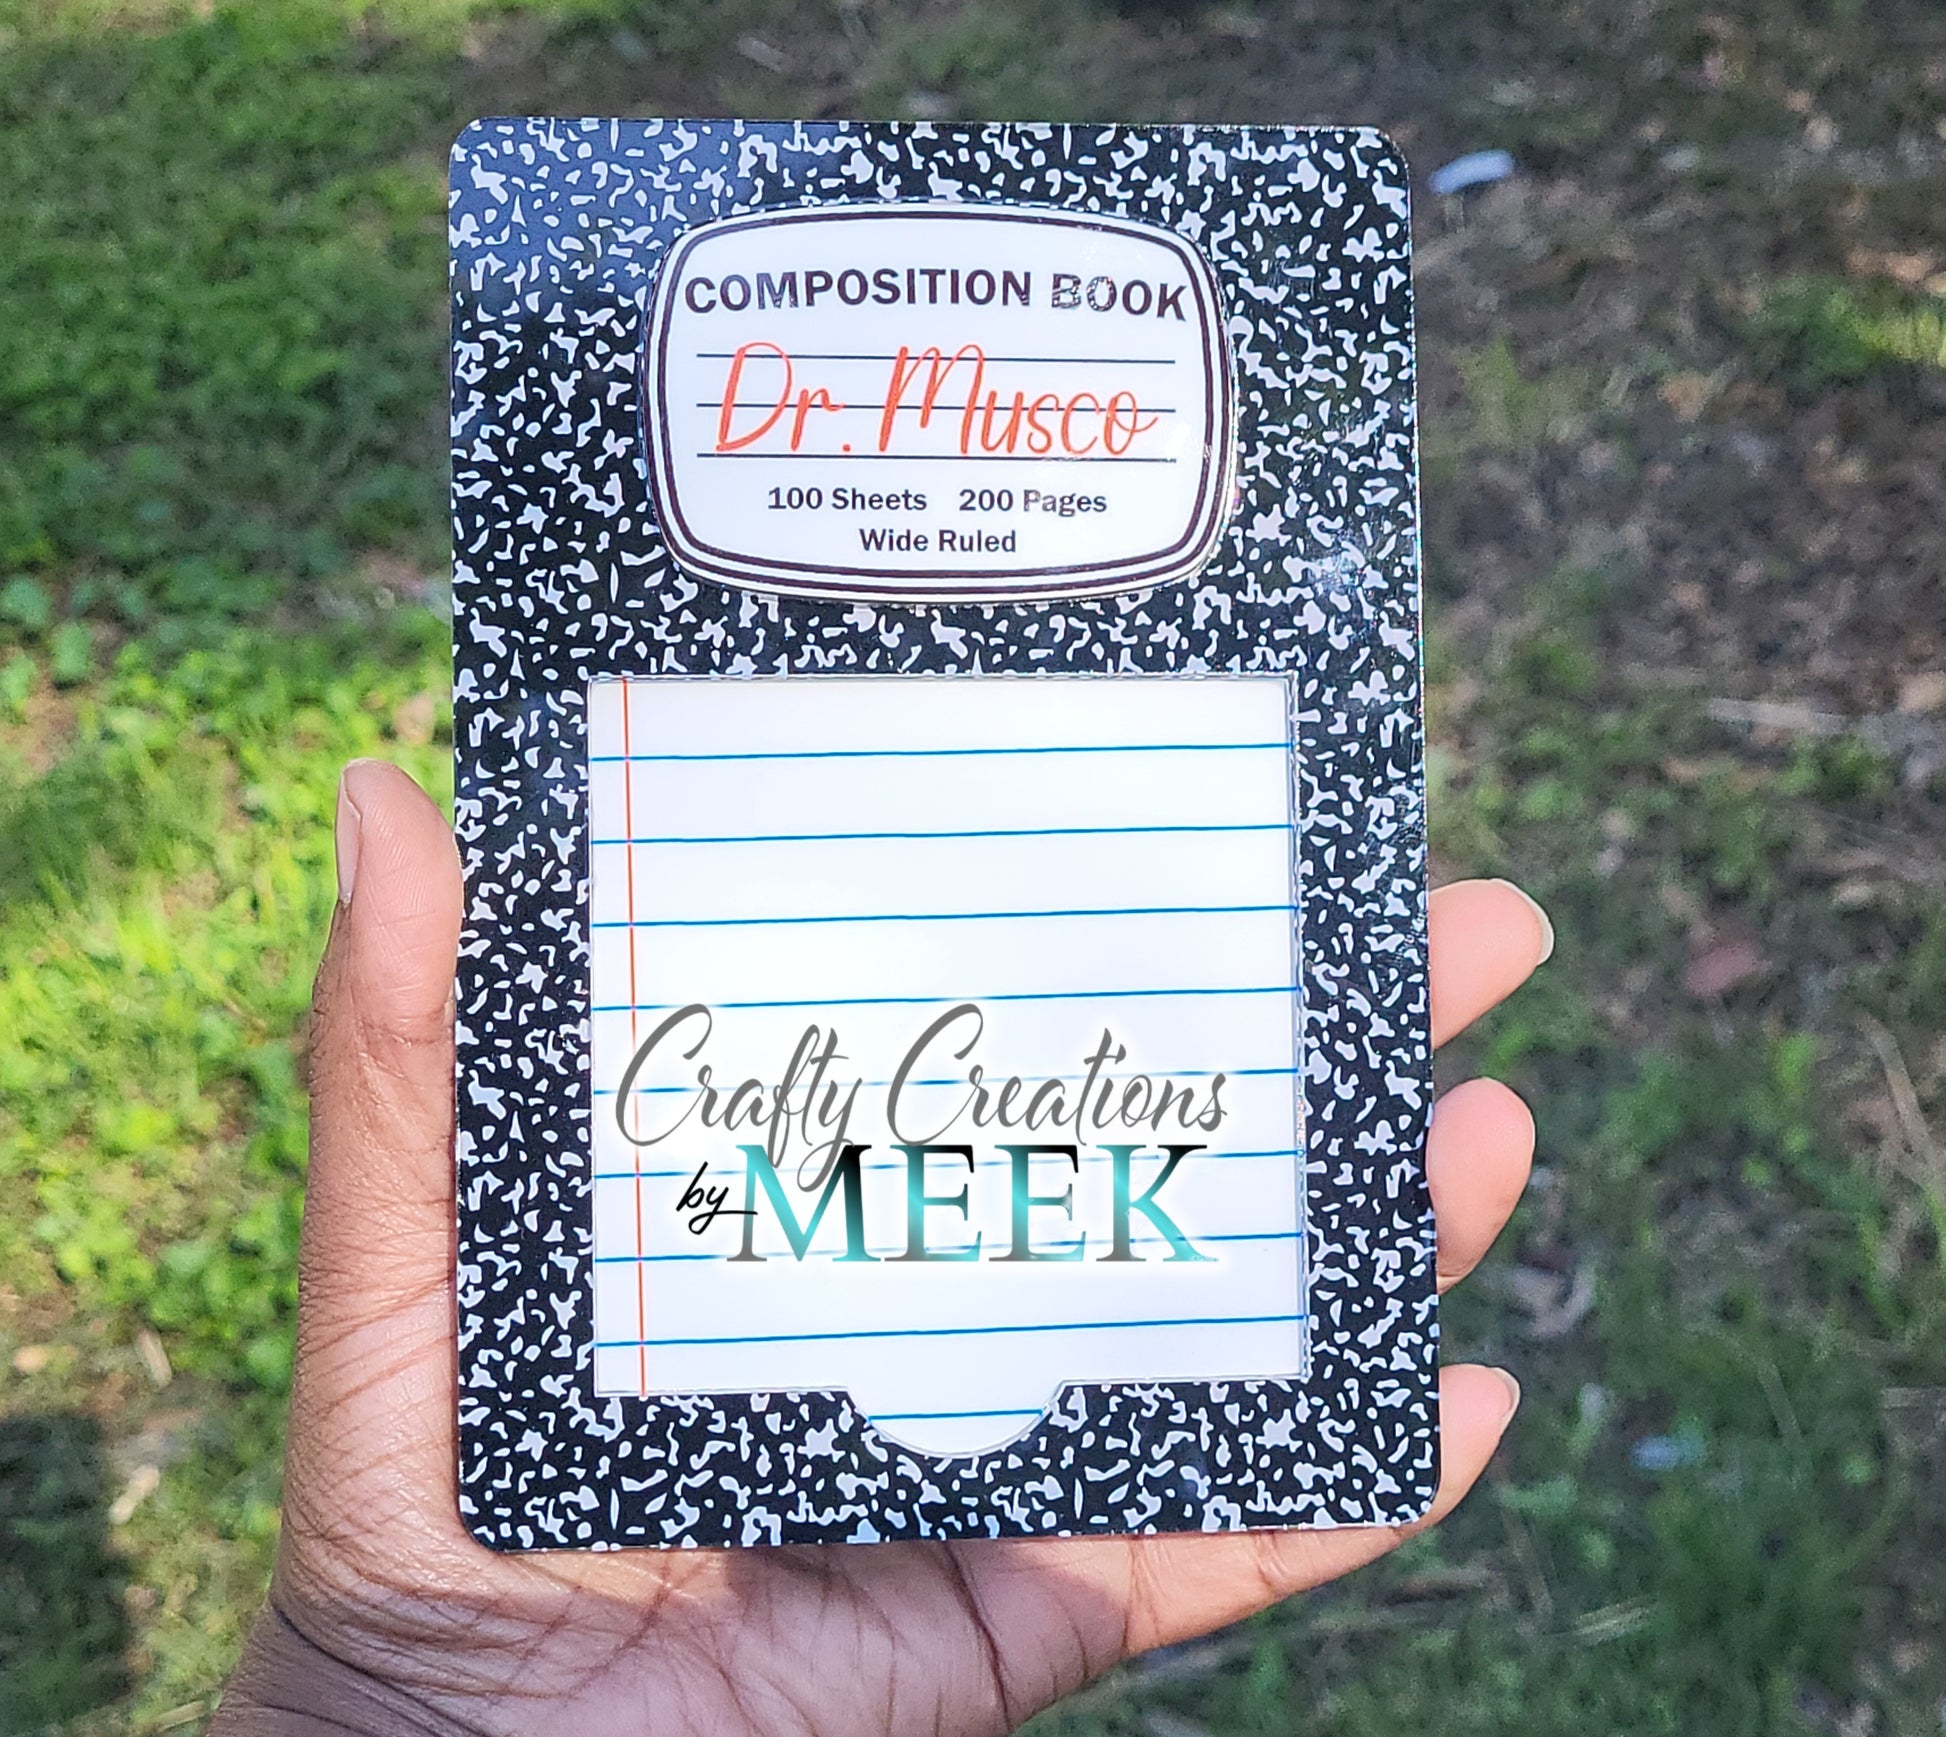 COMPOSITION BOOK
Dr. Musco
100 Sheets 200 Pages
Wide Ruled
Crafty Creations
by MEEK